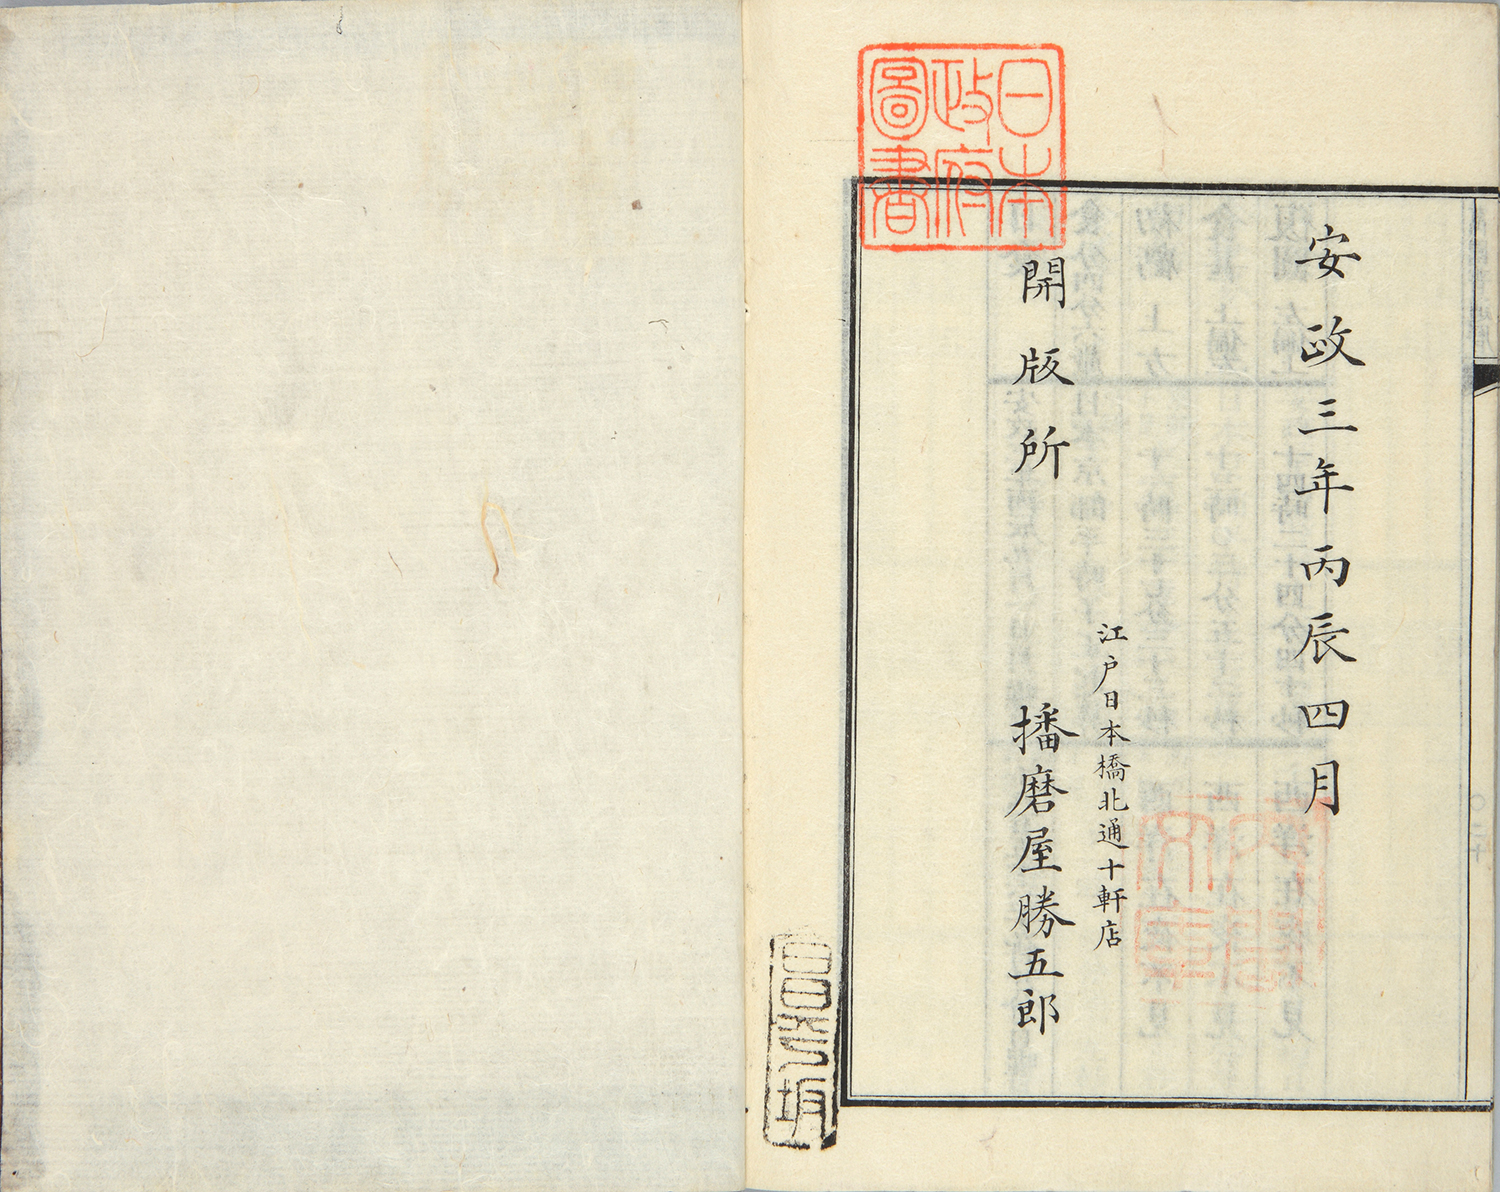 安政三年丙辰四月
江戸日本橋北通十軒店
開版所　播磨屋勝五郎
日本
政府
圖書
昌平坂